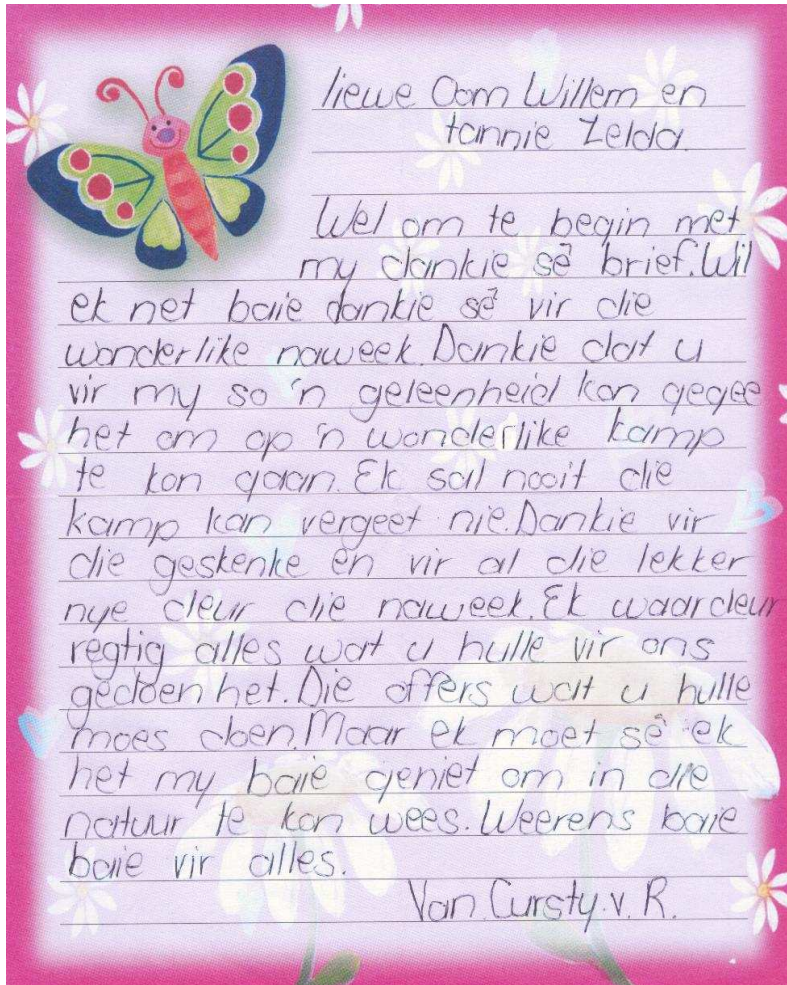 liewe Oom Willem en
tannie Zelda.
Wel om te begin met
my dankie sê brief. Wil
ek net baie dankie sê vir die
wonderlike naweek. Dankie dat u
vir my so 'n geleenheid kon gegee
het om op 'n wonderlike kamp
te kon gaan. Ek sal nooit die
kamp kan vergeet nie. Dankie vir
die geskenke en vir al die lekker
nye deur die naweek. Ek waardeur
regtig alles wat u hulle vir ons
gedoen het. Die offers wat u hulle
moes doen. Maar ek moet sê ek
het my baie geniet om in die
natuur te kon wees. Weerens baie
baie vir alles.
Van Cursty. v. R.